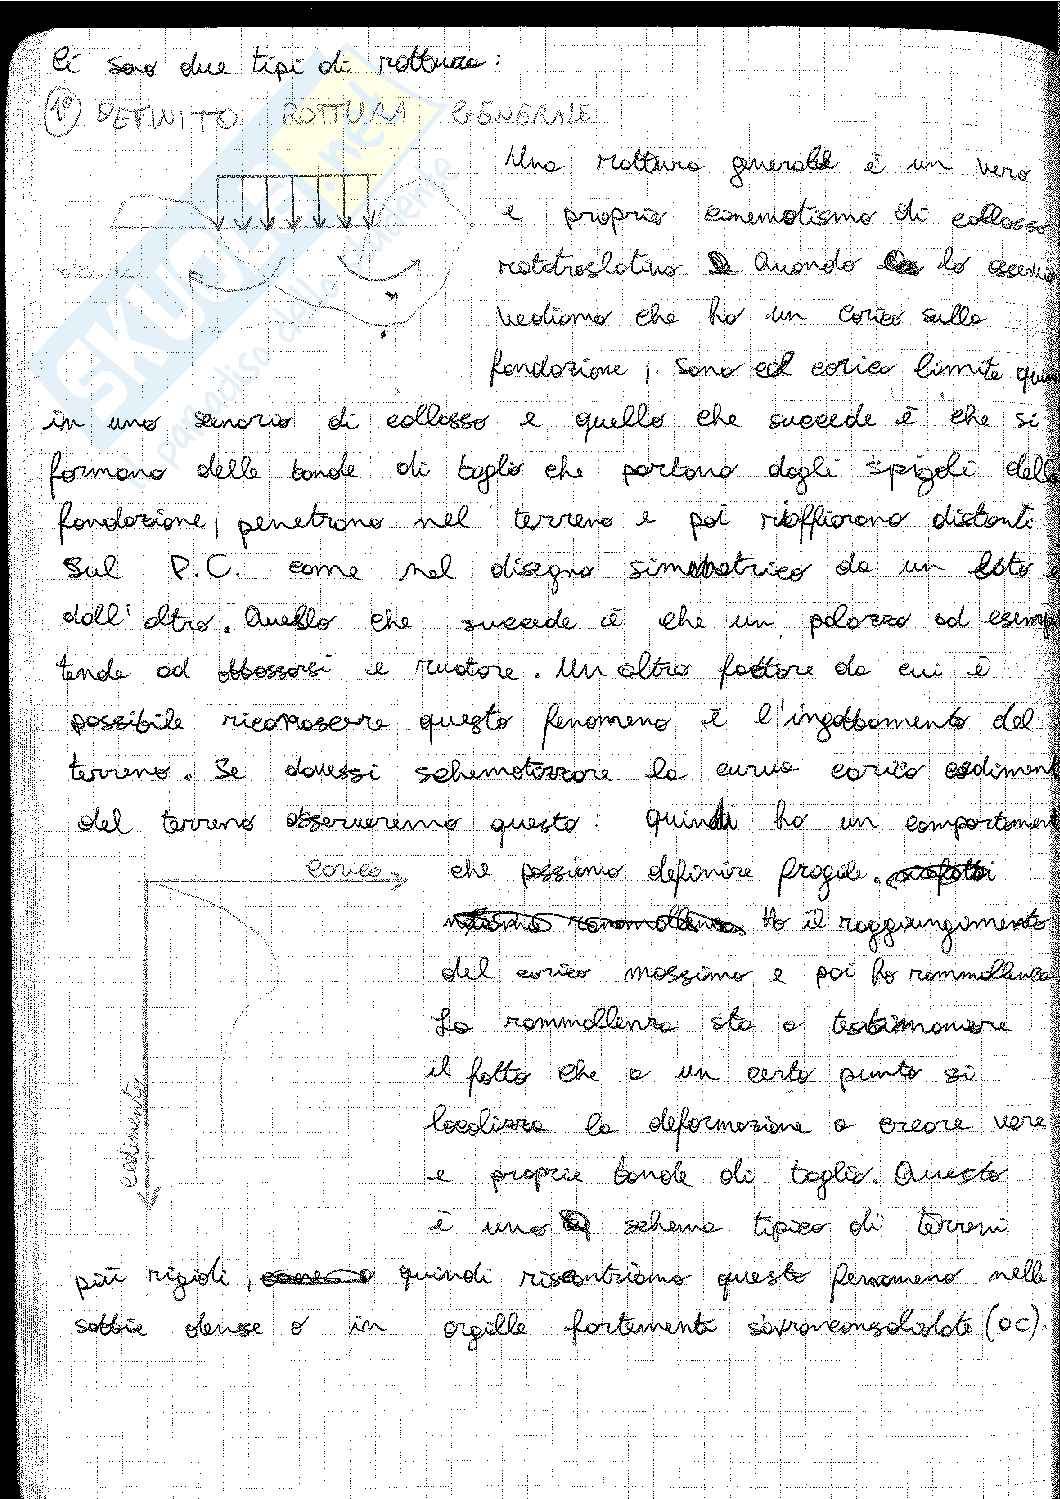 Ci sono due tipi di rottura:
1° DEFINITO ROTTURA GENERALE
Una rottura generale è un vero
e proprio cinematismo di collasso
rototraslativo Quando lo
vediamo che ho un carico sulla
fondazione, sono al carico limite
in uno scenario di collasso e quello che succede è che si
formano delle bande di taglio che partono dagli spigoli della
fondazione, penetrano nel terreno e poi riaffiorano distanti
sul P.C. come nel disegno simmetrico da un lato e
dall'altro. Quello che succede è che un palazzo ad esempio
tende ad abbassarsi e ruotare. Un altro fattore da cui è
possibile riconoscere questo fenomeno è l'ingobbamento del
terreno. Se dovessi schematizzare la curva carico cediment
del terreno osserveremo questo: quindi ho un comportament
carico
che possiamo definire fragile.
Ho il raggiungimento
del carico massimo e poi ho rammollenza
La rammollenza sta a testimoniare
il fatto che a un certo punto si
localizza la deformazione a creare vere
cedimento
e proprie bande di taglio. Questo
è uno schema tipico di terreni
più rigidi, quindi riscontriamo questo fenomeno nelle
sabbie dense o in argille fortemente sovraconsolidate (OC).
SKUOLA.net
paradiso dello studente